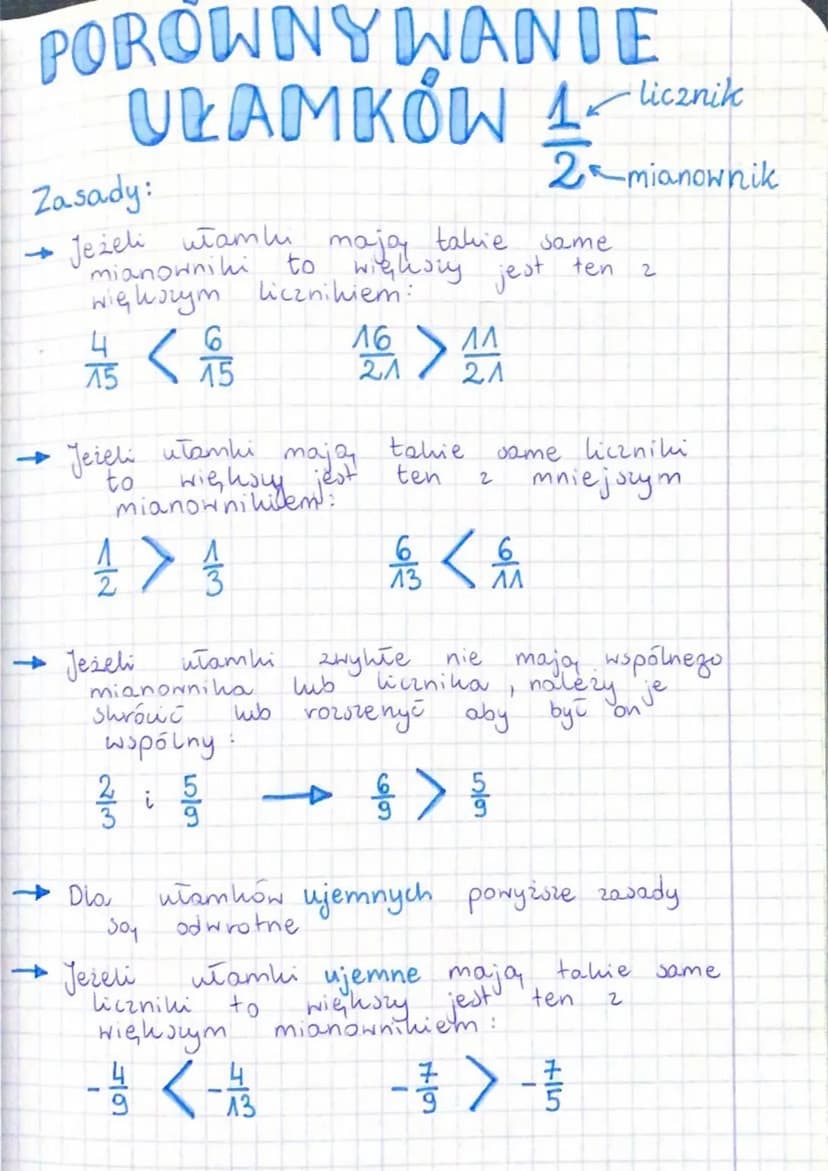 PORÓWNYWANIE
UŁAMKÓW 1/2 licznik
mianownik
Zasady:
→ Jeżeli ułamki mają takie same
mianowniki to większy jest ten z
większym licznikiem:
4/15 < 6/15 16/21 > 11/21
→ Jeżeli ułamki mają takie same liczniki
to większy jest ten z mniejszym
mianownikiem:
1/2 > 1/3 6/13 < 6/11
→ Jeżeli ułamki zwykłe nie mają wspólnego
mianownika lub licznika, należy je
skrócić lub rozszerzyć aby być on
wspólny:
2/3 i 5/9 → 6/9 > 5/9
→ Dla ułamków ujemnych powyższe zasady
są odwrotne
→ Jeżeli ułamki ujemne mają takie same
liczniki to większy jest ten z
większym mianownikiem:
-4/9 < -4/13 -7/9 > -7/5